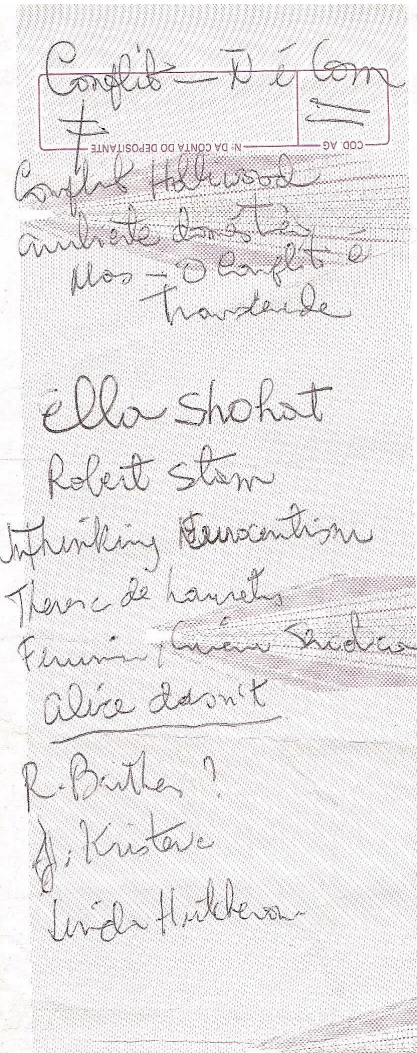 Conflito — Ñ é Com
≠ =
Nº DA CONTA DO DEPOSITANTE COD. AG
Conflito Hollywood
ambiente doméstico
Mas — O Conflito é
Transcende
Ella Shohat
Robert Stam
Unthinking Eurocentrism
de Lauretis
Alice doesn't
R. Barthes ?
J. Kristeva
Linda Hutcheon